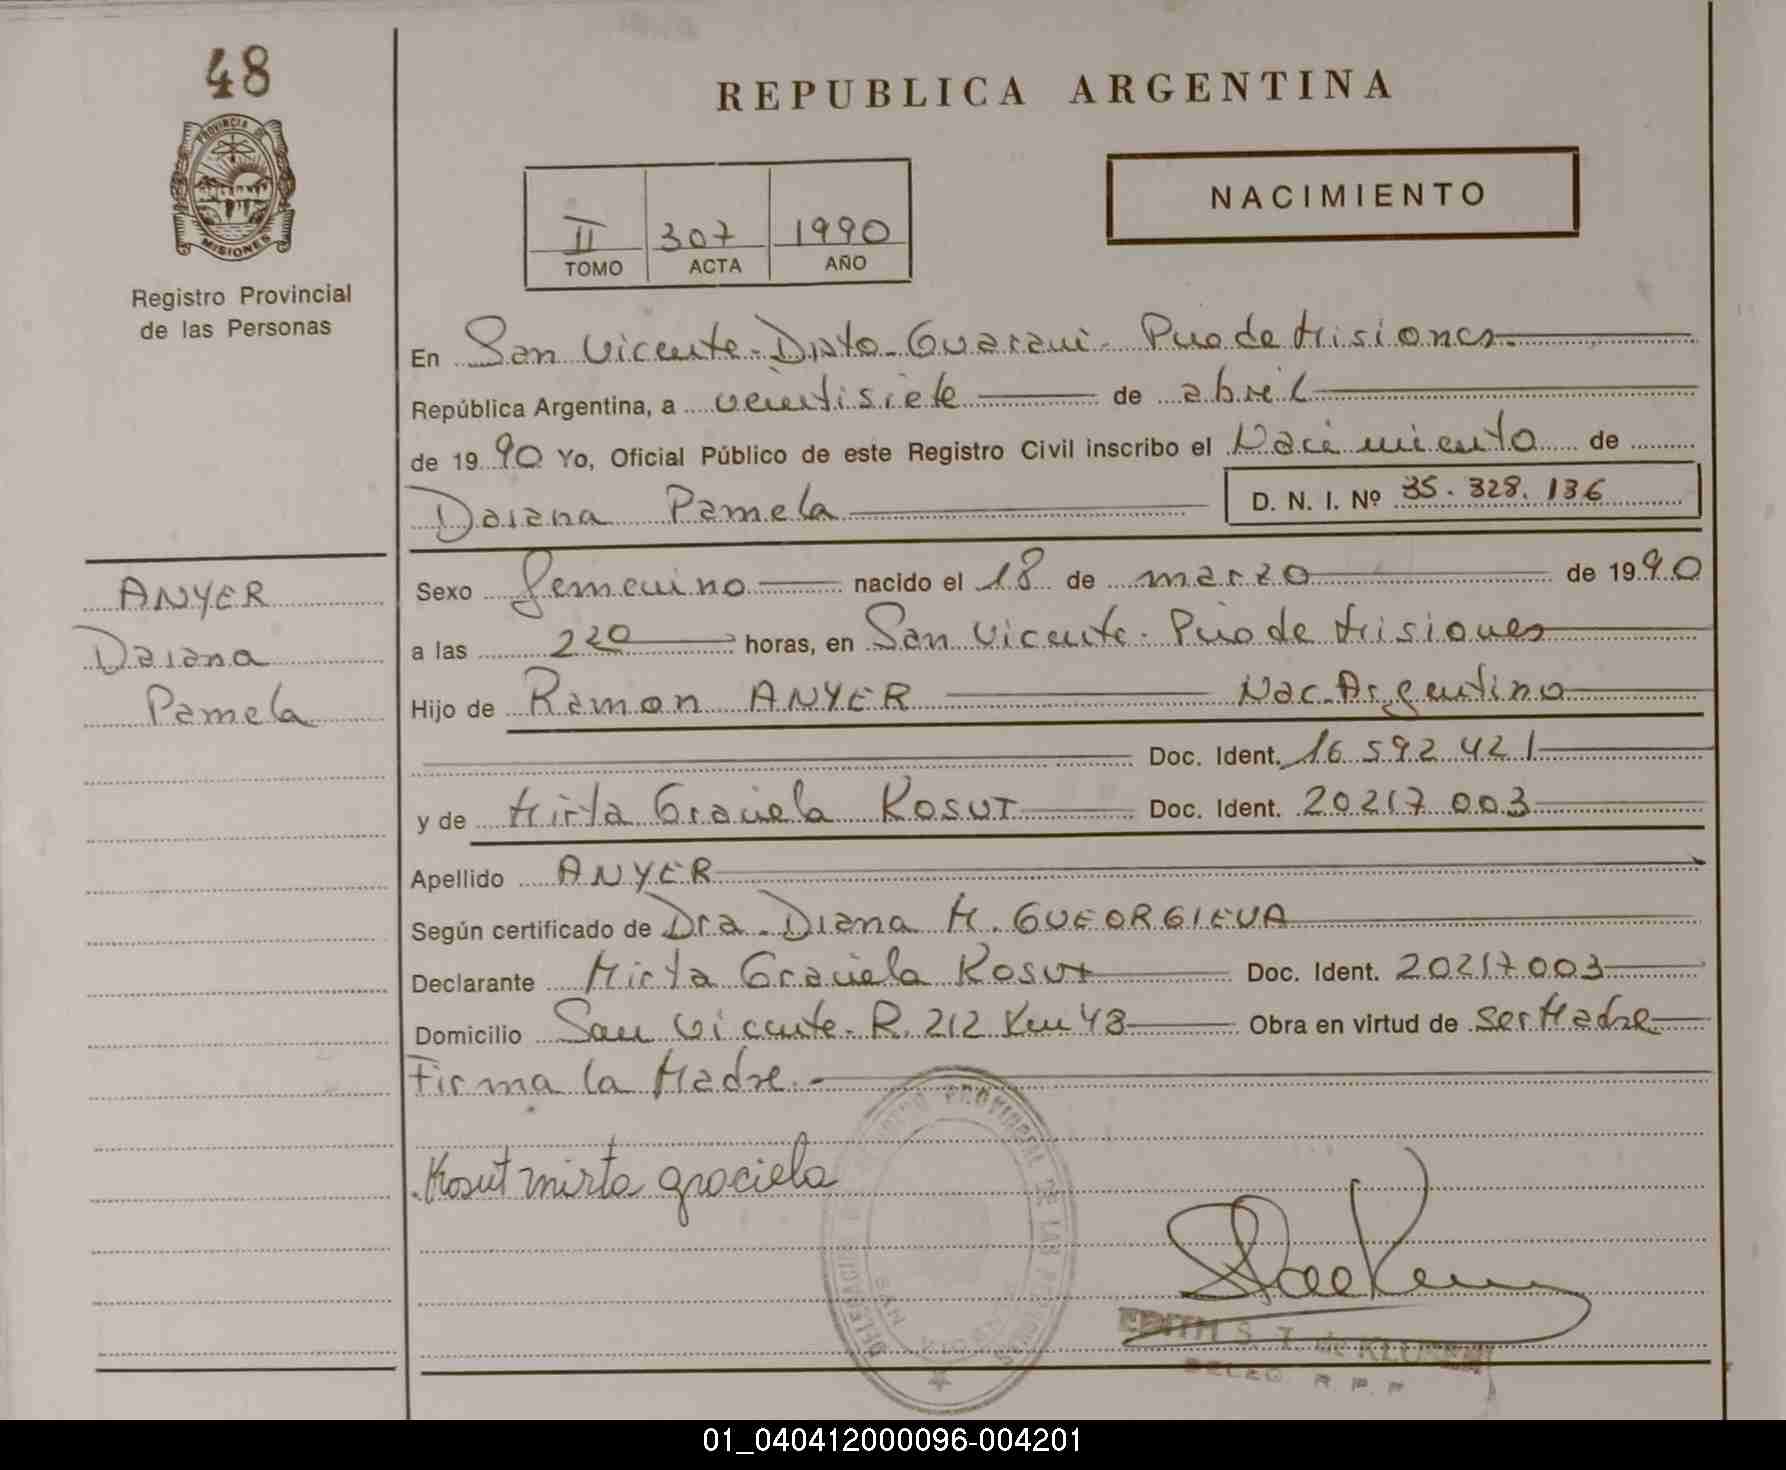 48
PROVINCIA DE
MISIONES
Registro Provincial
de las Personas
ANYER
Daiana
Pamela
REPUBLICA ARGENTINA
II 307 1990
TOMO ACTA AÑO
NACIMIENTO
En San Vicente - Dpto - Guarani - Pcio de Misiones
República Argentina, a veintisiete de abril
de 1990 Yo, Oficial Público de este Registro Civil inscribo el Nacimiento de
Daiana Pamela D. N. I. Nº 35.328.136
Sexo femenino nacido el 18 de marzo de 1990
a las 220 horas, en San Vicente - Pcio de Misiones
Hijo de Ramon ANYER Nac. Argentino
Doc. Ident. 16 592 421
y de Mirta Graciela KOSUT Doc. Ident. 20217 003
Apellido ANYER
Según certificado de Dra. Diana M. GUEORGIEVA
Declarante Mirta Graciela Kosut Doc. Ident. 20217003
Domicilio San Vicente - R. 212 Km 43 Obra en virtud de ser Madre
Firma la Madre. -
Kosut mirta graciela
DELEGACION REGISTRO PROVINCIAL DE LAS PERSONAS
SAN VICENTE
EDITH S. T. de
DELEG. R. P. P
01_040412000096-004201